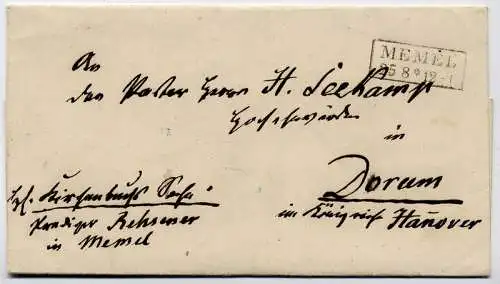 An
den Pastor Herrn H. Seekamp
Hochehrwürden
in
Dorum
im Königreich Hañover
MEMEL
25 8 * 12-1
Kirchenbuchs Sache
Prediger Rehsener
in Memel